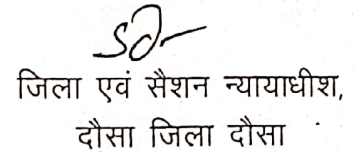 Sd-
जिला एवं सैशन न्यायाधीश,
दौसा जिला दौसा